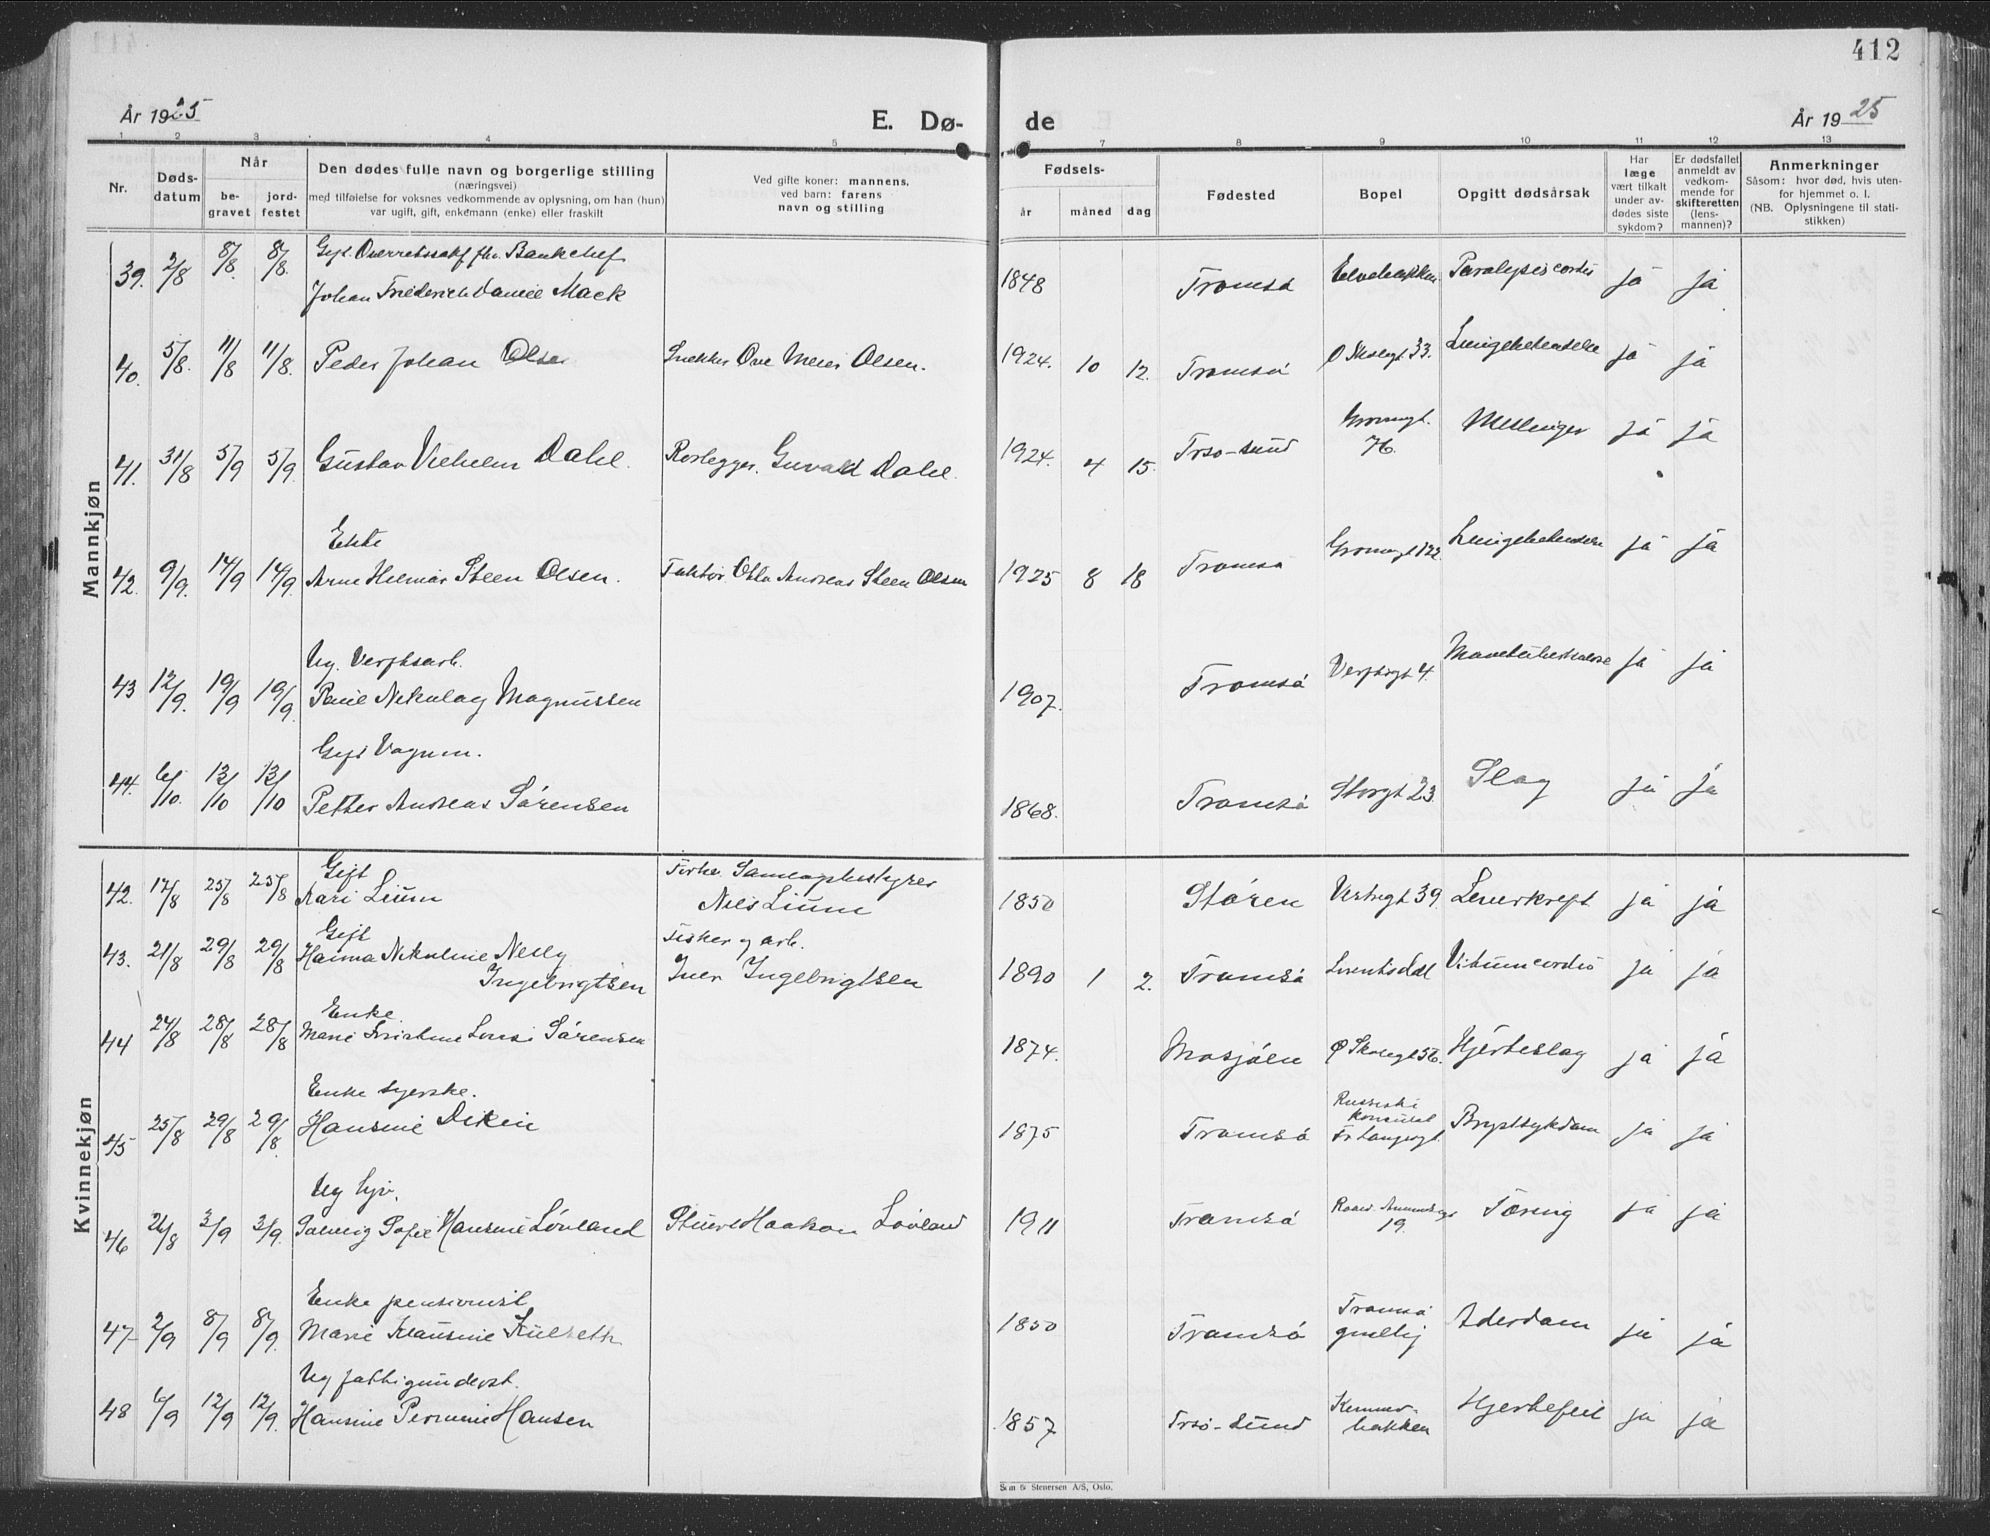 412
År 1925
E. Dø-
de
År 1925
1 2 3 4 5 7 8 9 10 11 12 13
Nr.
Døds-
datum
Når
be-
gravet
jord-
festet
Den dødes fulle navn og borgerlige stilling
(næringsvei)
med tilføielse for voksnes vedkommende av oplysning, om han (hun)
var ugift, gift, enkemann (enke) eller fraskilt
Ved gifte koner: mannens,
ved barn: farens
navn og stilling
Fødsels-
år måned dag
Fødested
Bopel
Opgitt dødsårsak
Har
læge
vært tilkalt
under av-
dødes siste
sykdom?
Er dødsfallet
anmeldt av
vedkom-
mende for
skifteretten
(lens-
mannen)?
Anmerkninger
Såsom: hvor død, hvis uten-
for hjemmet o. l.
(NB. Oplysningene til stati-
stikken)
Mannkjøn
Gift Overretssakf. fhv. Bankchef
39. 2/8 8/8. 8/8. Johan Friederich Daniel Mack 1848 Tromsø Elvebakken Paralysis cordis ja ja
40. 5/8. 11/8 11/8. Peder Johan Olsen Snekker Ove Meier Olsen. 1924. 10 12. Tromsø Ø Skolegt 33. Lungebetendelse ja ja
Grønnegt.
41. 31/8 5/9 5/9. Gustav Vilhelm Dahl. Rørlegger. Guvald Dahl. 1924. 4 15. Trsø-sund 76. ja ja
Ekte
42. 9/9. 14/9 14/9. Arne Hilmar Steen Olsen. Faktor Otto Andreas Steen Olsen 1925 8 18 Tromsø Grønnegt 122 Lungebetendelse ja ja
Ug. Verftsarb.
43 12/9. 19/9 19/9. Paul Nikolay Magnussen 1907. Tromsø Verftsgt 4. ja ja
Gift Vognm.
44. 6/10. 13/10 13/10 Petter Andreas Sørensen 1868. Tromsø Storgt 23. Slag ja ja
Kvinnekjøn
Gift
42. 17/8 25/8 25/8 Kari Lium Nils Lium 1850 Støren Vestregt 39. Leverkreft ja ja
Gift Fisker og arb.
43. 21/8 29/8 29/8 Hanna Nikoline Nelly
Ingebrigtsen Iver Ingebrigtsen 1890 1 2. Tromsø Vitium cordis ja ja
Enke
44 24/8 28/8 28/8 Marie Kristine Lovise Sørensen 1874. Mosjøen Ø Skolegt 56. Hjerteslag ja ja
Enke syerske.
45 25/8 29/8 29/8. Hansine Diken 1875 Tromsø Russiske
konsulat
Fr Langesgt Brystsykdom ja ja
Ug tjv.
46 26/8 3/9 3/9. Solveig Sofie Hansine Løvland Stuert Haakon Løvland 1911 Tromsø Roald Amundsgt
19. Tæring ja ja
Enke pensionist
47 2/9 8/9 8/9. Marie Klausine Kulseth 1850 Tromsø
gmlhj Alderdom ja ja
Ug fattigunderst.
48 6/9 12/9 12/9. Hansine Pernnie Hansen 1857. Trsø-sund Hjertefeil ja ja
Sem & Stenersen A/S, Oslo.